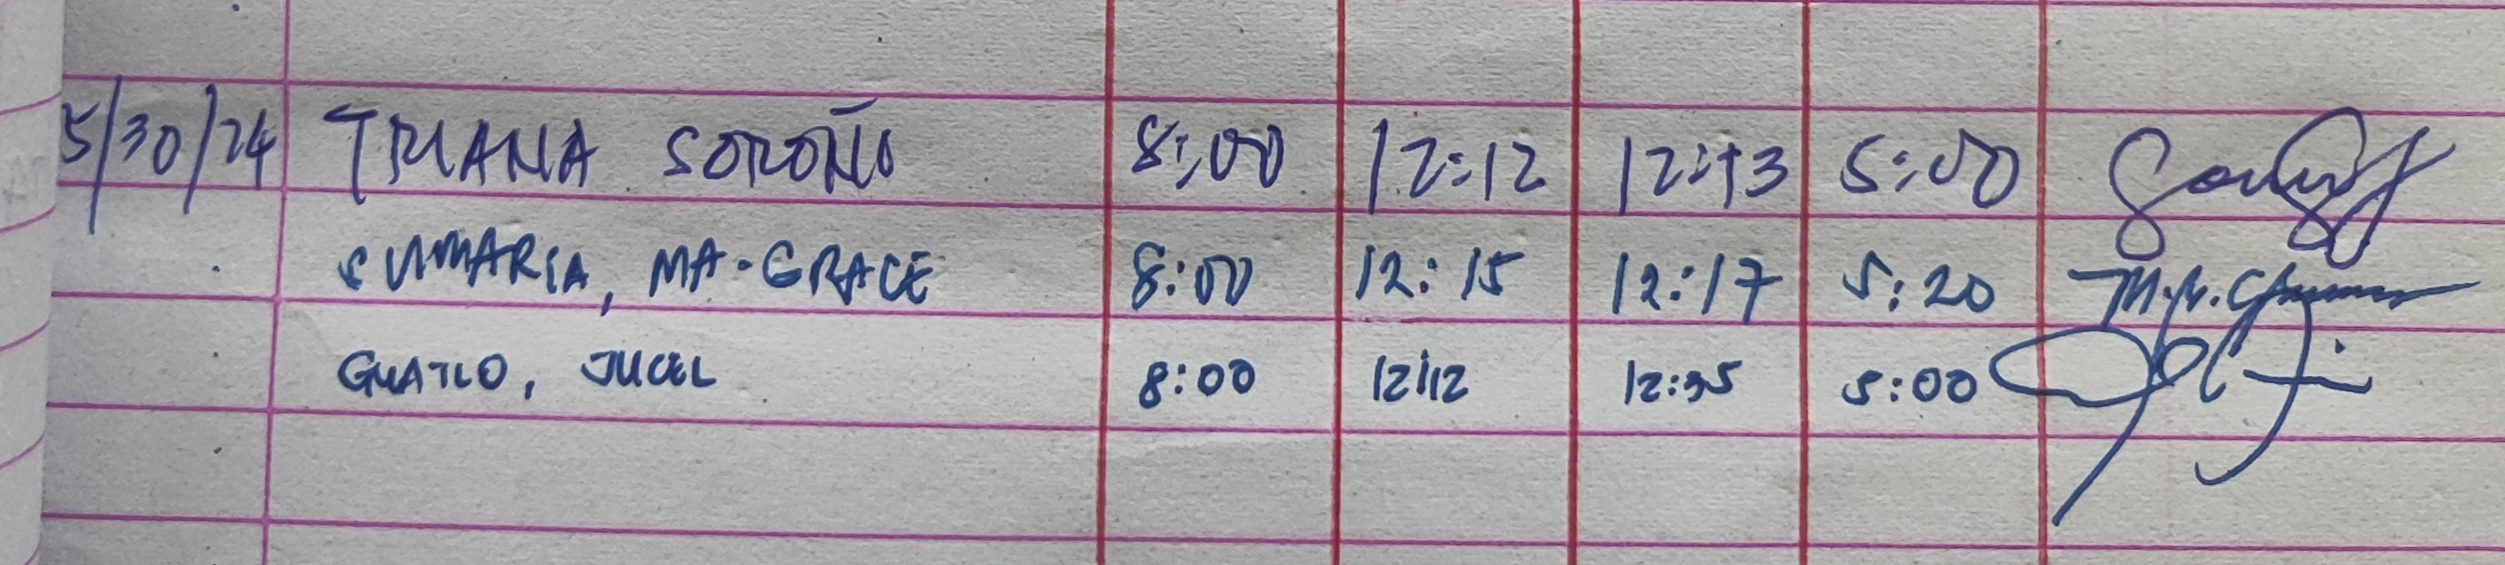 5/30/24 TRIANA SOROÑO 8:00 12:12 12:13 5:00
SUMARIA, MA. GRACE 8:00 12:15 12:17 5:20
GUATLO, JUCEL 8:00 12:12 12:35 5:00